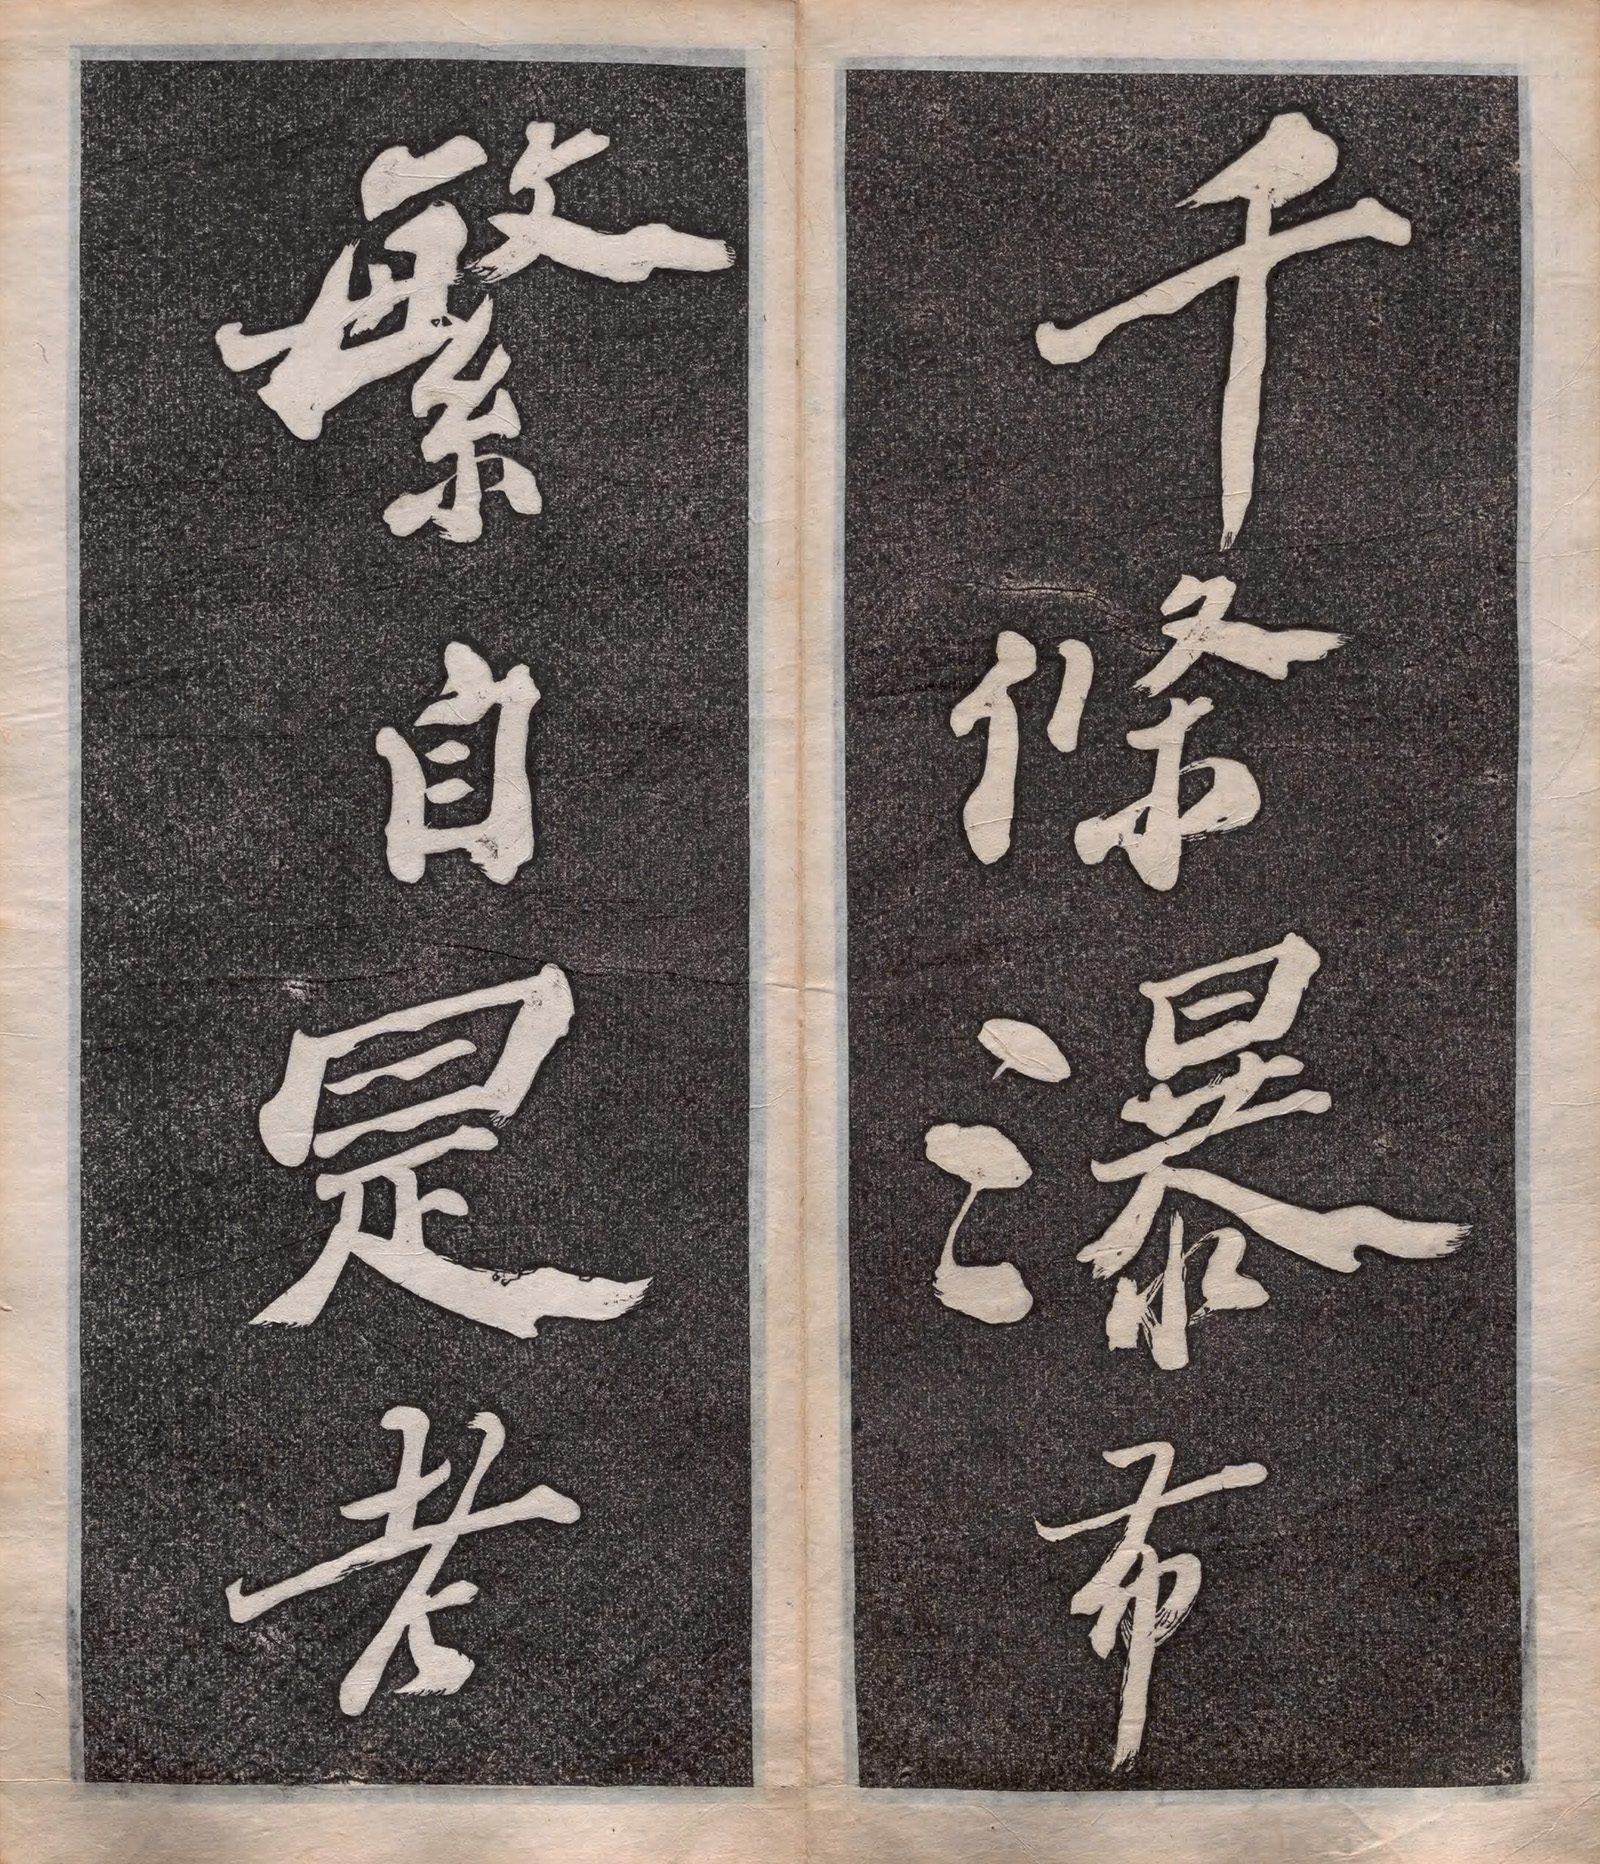 千條瀑布
繁自是老